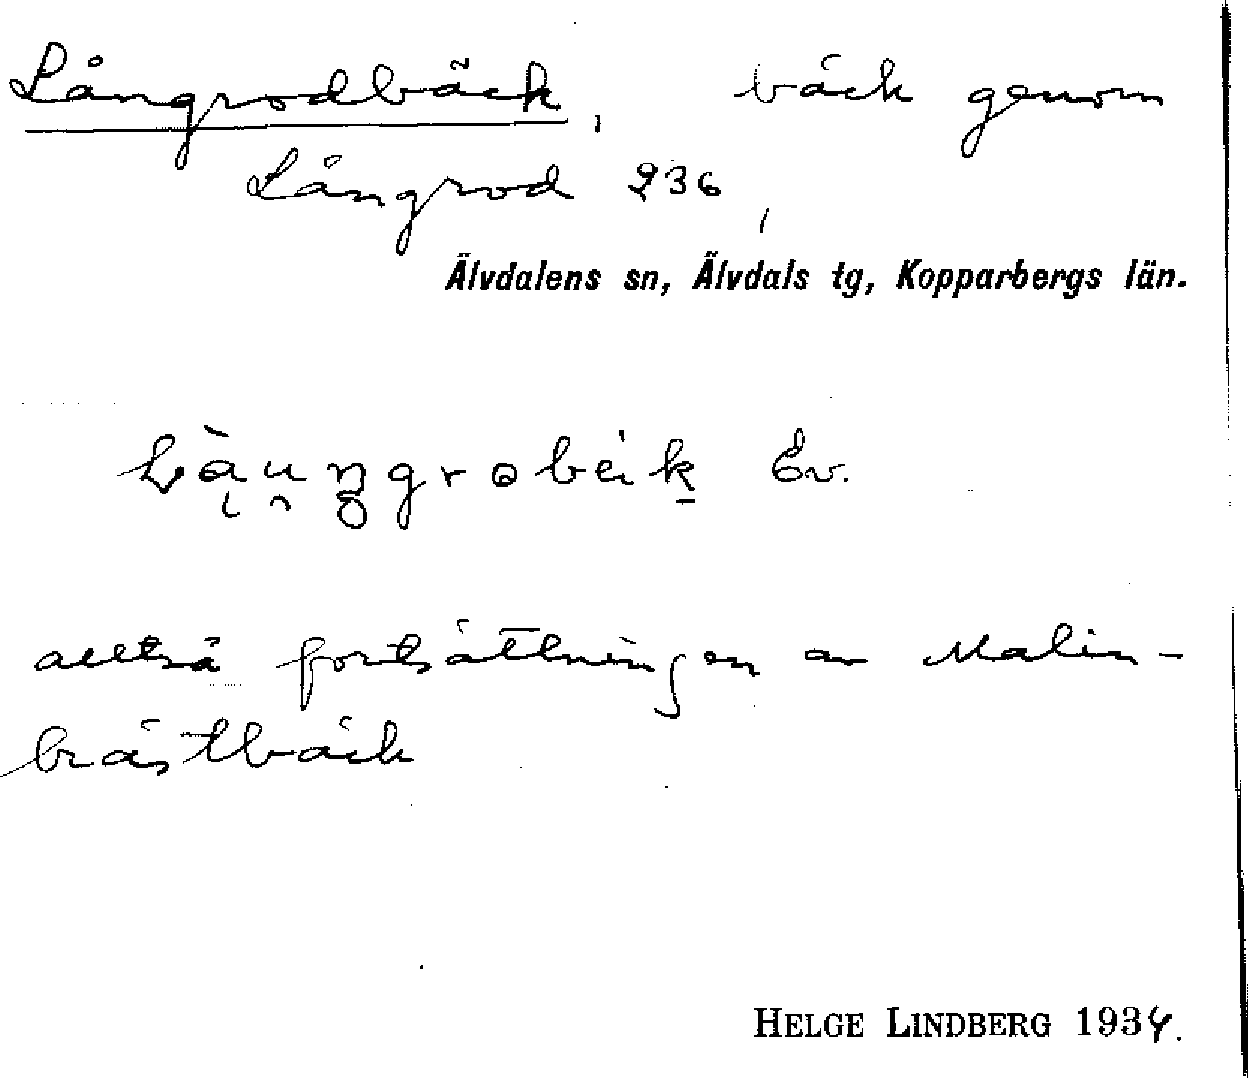 Långrodbäck, bäck genom
Långrod 236,
Älvdalens sn, Älvdals tg, Kopparbergs län.
Ev.
alltså fortsättningen av Malin-
brästbäck
HELGE LINDBERG 1934.